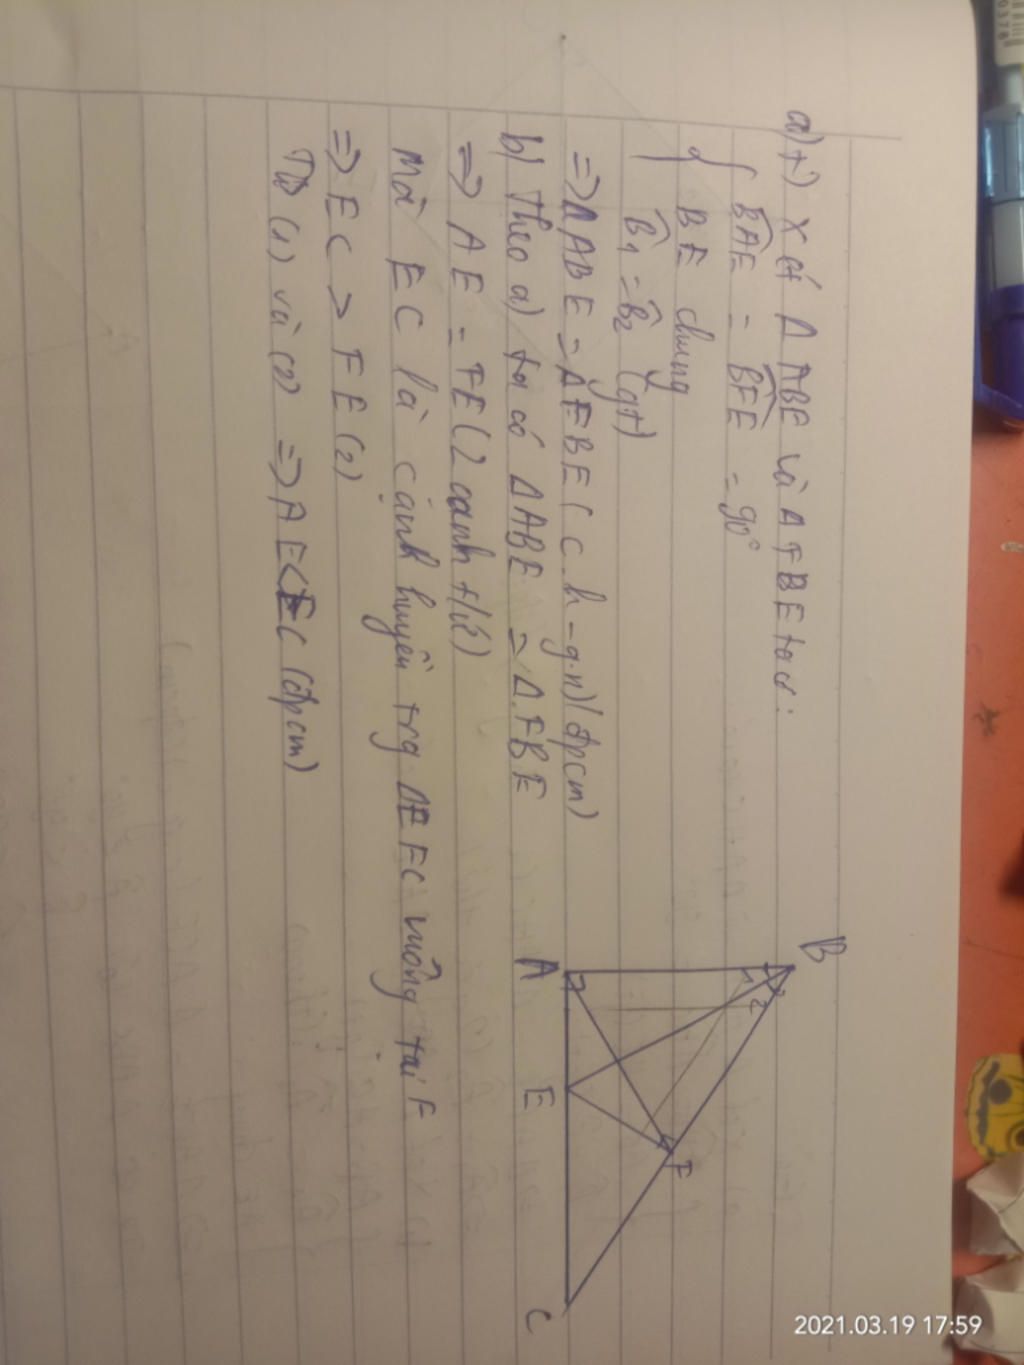 a) +) Xét Δ ABE và Δ FBE ta có:
BAE = BFE = 90°
BE chung
B1 = B2 (gt)
=> ΔABE = ΔFBE (c.h-g.n) (đpcm)
b) Theo a) ta có ΔABE = Δ FBE
=> AE = FE (2 cạnh t/ư)
Mà EC là cạnh huyền trg ΔEFC vuông tại F
=> EC > FE (2)
Từ (1) và (2) => AE < EC (đpcm)
B
1 2
A
E
F
C
2021.03.19 17:59